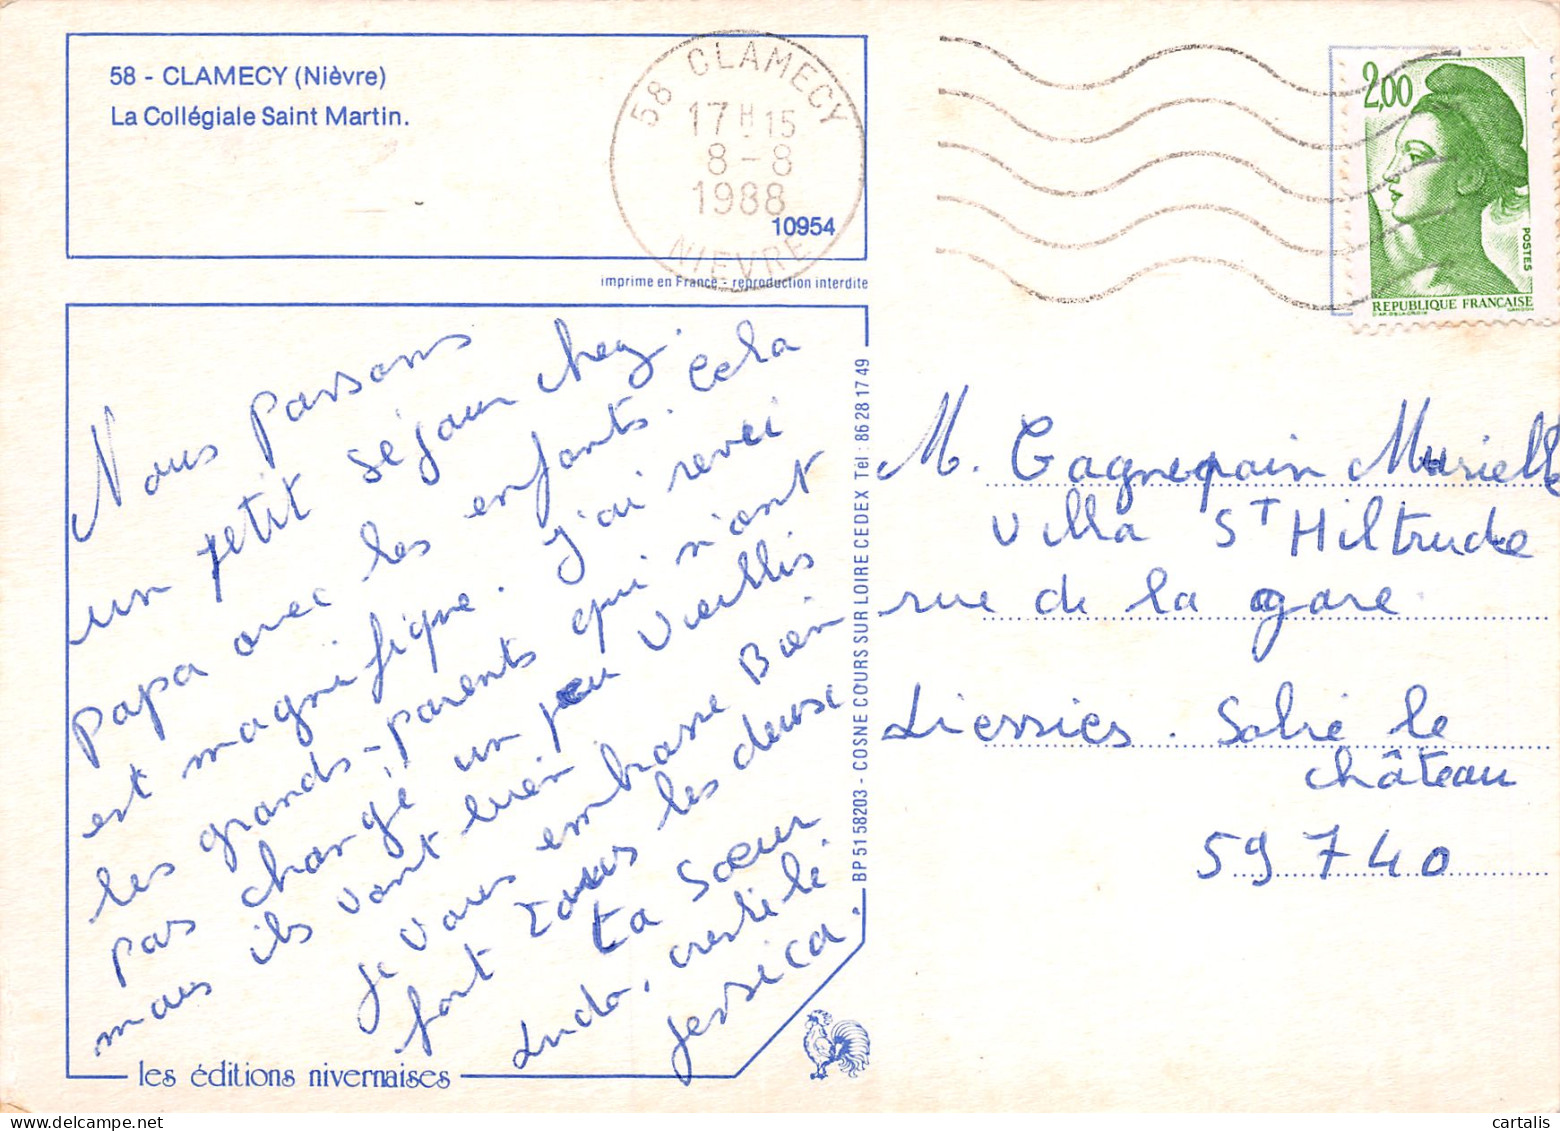 58 - CLAMECY (Nièvre)
La Collégiale Saint Martin.
10954
imprime en France - reproduction interdite
58 CLAMECY
17 H 15
8 - 8
1988
NIEVRE
2,00
POSTES
REPUBLIQUE FRANCAISE
Nous passons
un petit séjour chez
papa avec les enfants. Cela
est magnifique. J'ai revei
les grands-parents qui n'ont
pas changé un peu vieillis
mais ils vont bien
je vous embrasse Bien
fort tous les deux
ta Sœur
Ludo,
Jessica.
les éditions nivernaises
BP 51 58203 - COSNE COURS SUR LOIRE CEDEX Tél : 86 28 17 49
M. Gagnepain Murielle
Villa ST Hiltrude
rue de la gare.
Liessies. Solre le
château
59 740
cartalis